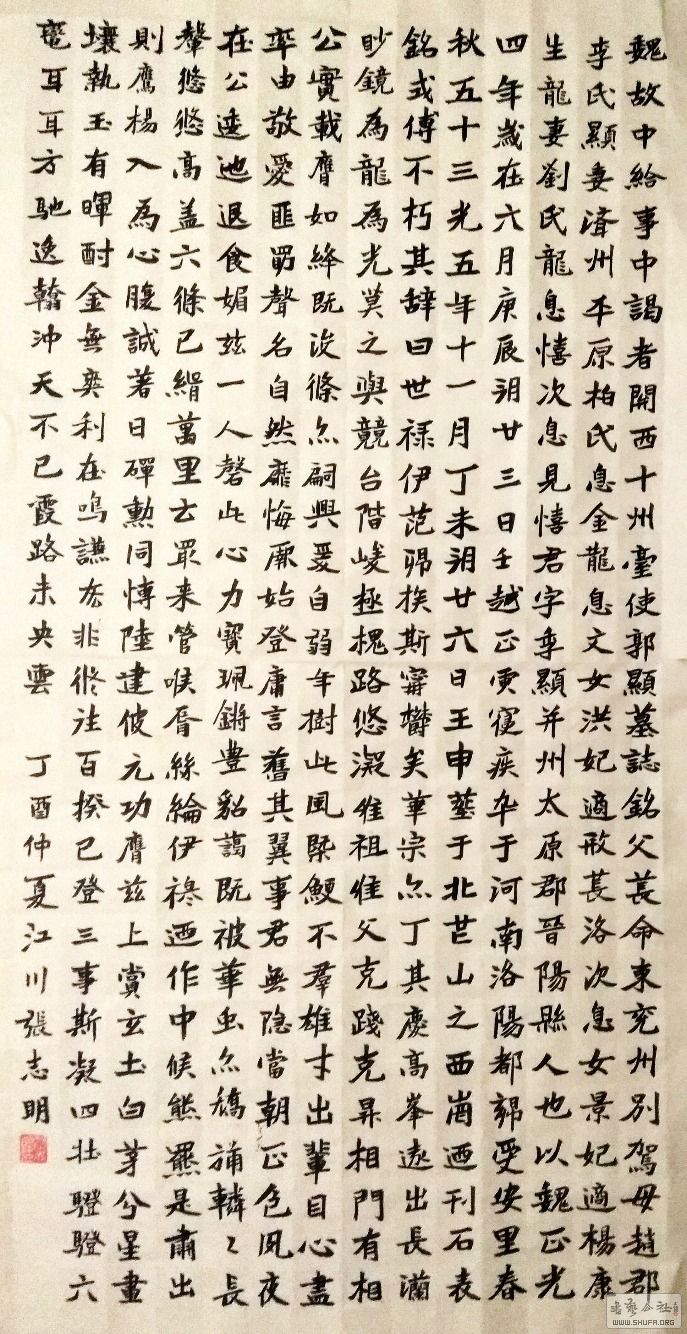 魏故中給事中謁者關西十州臺使郭顯墓誌銘父萇命東兗州別駕母趙郡
李氏顯妻濟州平原柏氏息金龍息文女洪妃適邢萇洛次息女景妃適楊康
生龍妻劉氏龍息憘次息見憘君字季顯并州太原郡晉陽縣人也以魏正光
四年歲在六月庚辰朔廿三日壬越正寅寢疾卒于河南洛陽都鄉受安里春
秋五十三光五年十一月丁未朔廿六日壬申塟于北芒山之西崗迺刊石表
銘式傅不朽其辞曰世祿伊范昴挨斯甯欝矣華宗亦丁其慶高峯遠出長瀾
眇鏡為龍為光莫之與競台階峻極槐路悠凝維祖維父克踐克昇相門有相
公實載膺如絳既洨條亦嗣興爰自弱年樹此風槩鯁不羣雄才出輩目心盡
率由敬愛匪勗聲名自然靡悔厥始登庸言舊其翼事君無隐當朝正色夙夜
在公逶迤退食媚玆一人磬此心力寶珮鏘豊貂藹既被華虫亦矯旒轔〻長
聲悠悠高盖六條已緝萬里云眾来管喉脣絲綸伊褖迺作中候熊羆是肅出
則鷹楊入為心腹誠著日磾勲同博陸建彼元功膺兹上賞玄土白茅兮星畫
壤執玉有暉酎金無奕利在鳴謙太非終注百揆已登三事斯凝四壯騤騤六
轡耳耳方馳逸翰沖天不已霞路未央雲 丁酉仲夏江川張志明
WWW.SHUFA.ORG